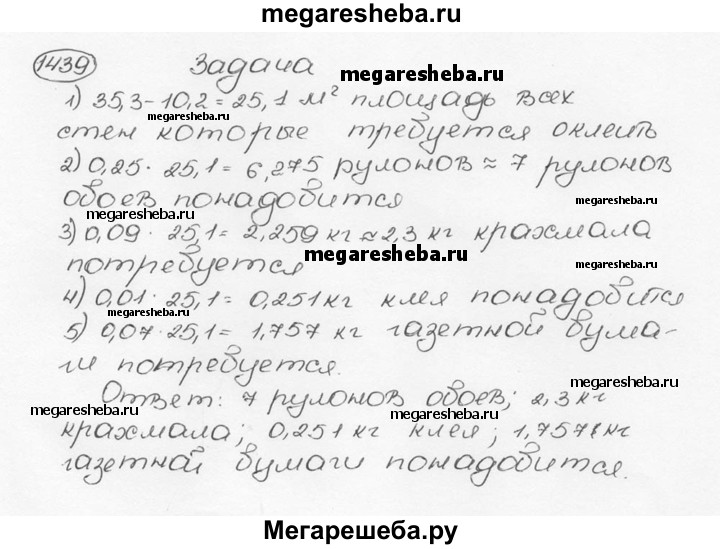 megaresheba.ru
1439 Задача
megaresheba.ru
1) 35,3-10,2=25,1 м² площадь всех
megaresheba.ru megaresheba.ru
стен которые требуется оклеить
2) 0,25·25,1=6,275 рулонов ≈ 7 рулонов
обоев понадобится
megaresheba.ru megaresheba.ru
3) 0,09·25,1=2,259 кг ≈ 2,3 кг крахмала
megaresheba.ru
потребуется
megaresheba.ru
4) 0,01·25,1=0,251 кг клея понадобится
megaresheba.ru
5) 0,07·25,1=1,757 кг газетной бума-
ги потребуется.
megaresheba.ru
Ответ: 7 рулонов обоев; 2,3 кг
megaresheba.ru megaresheba.ru
крахмала; 0,251 кг клея; 1,757 кг
газетной бумаги понадобится.
Мегарешеба.ру